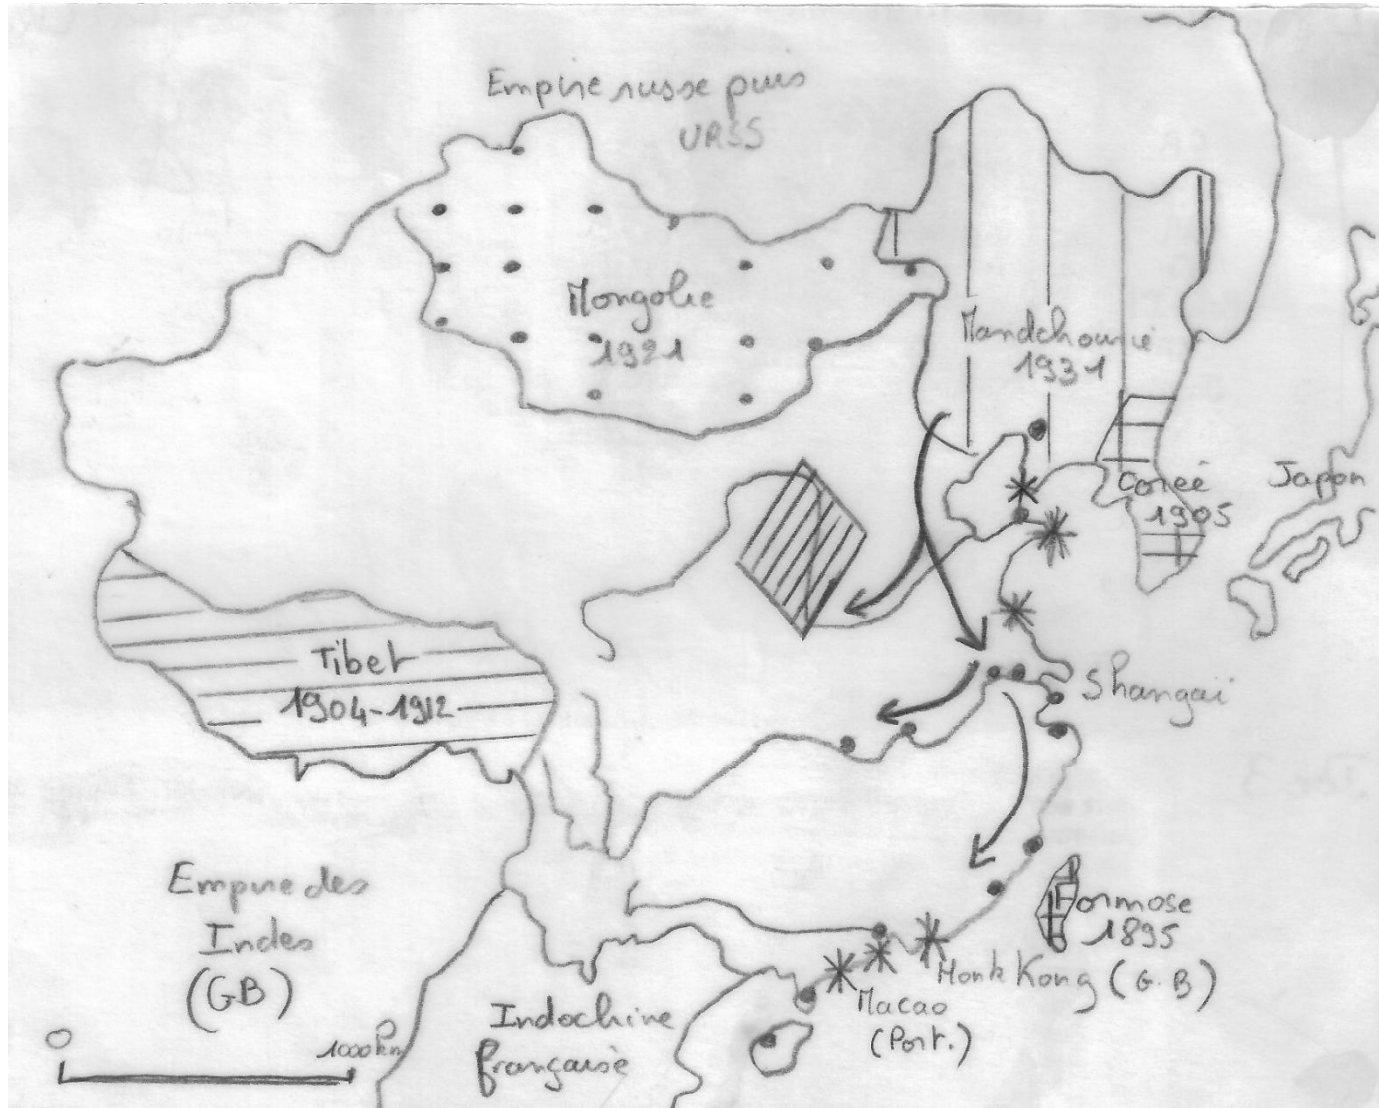 Empire russe puis
URSS
Mongolie
1921
Mandchourie
1931
Corée
1905
Japon
Tibet
1904-1912
Shangaï
Empire des
Indes
(GB)
Formose
1895
Honk Kong (G.B)
Macao
(Port.)
Indochine
française
0
1000 km